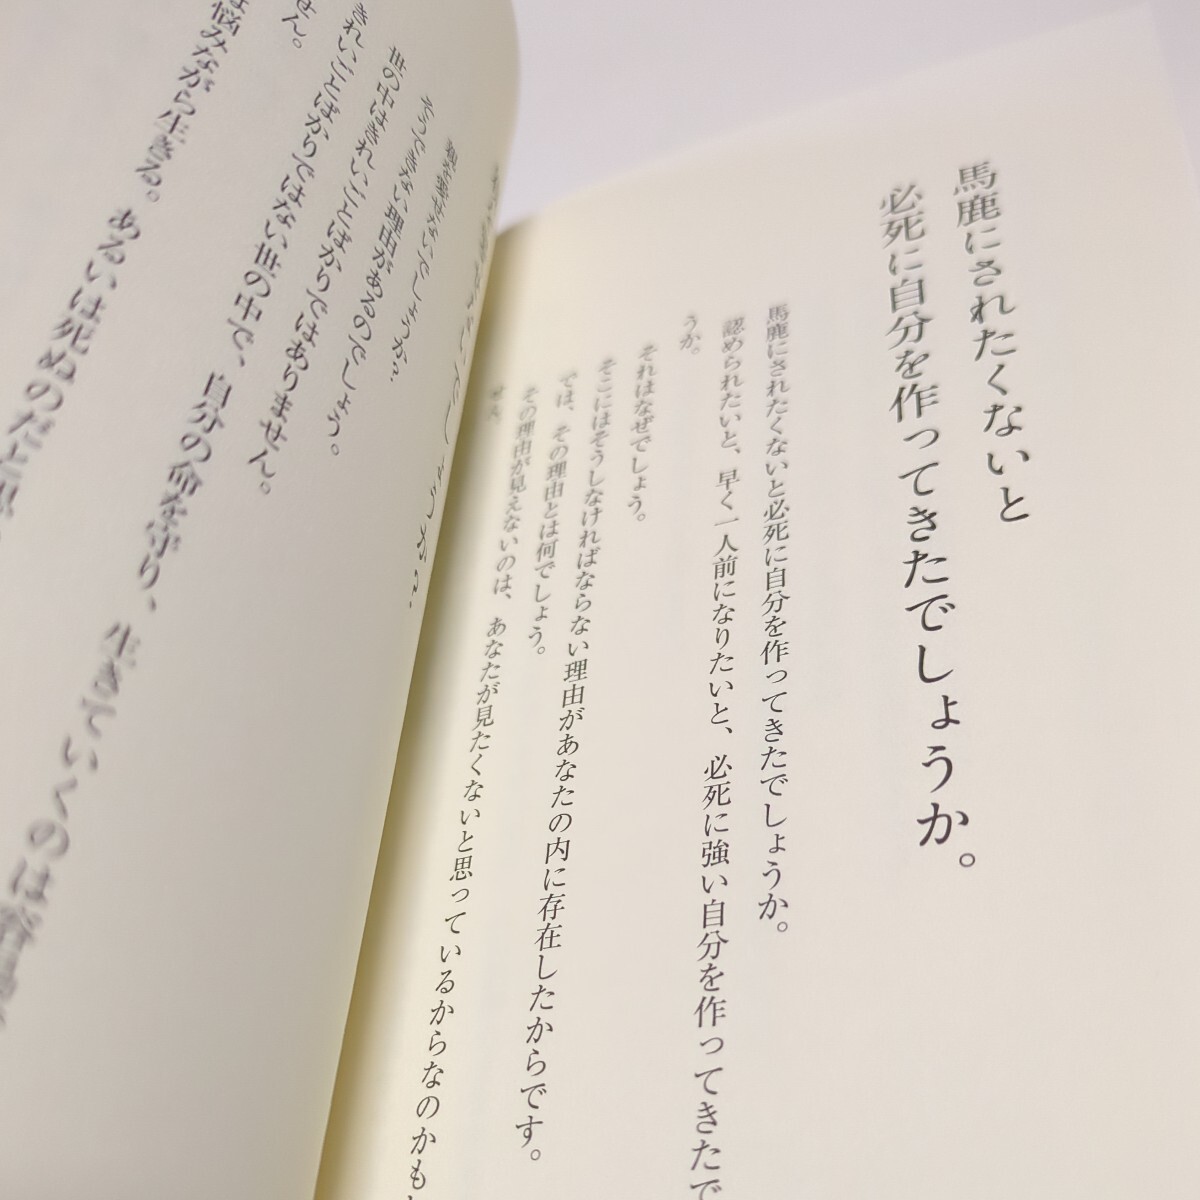 馬鹿にされたくないと
必死に自分を作ってきたでしょうか。
馬鹿にされたくないと必死に自分を作ってきたでしょうか。
認められたいと、早く一人前になりたいと、必死に強い自分を作ってきたで
うか。
それはなぜでしょう。
そこにはそうしなければならない理由があなたの内に存在したからです。
では、その理由とは何でしょう。
その理由が見えないのは、あなたが見たくないと思っているからなのかも
せん。
そうできない理由があるのでしょう。
世の中はきれいごとばかりではありません。
きれいごとばかりではない世の中で、自分の命を守り、生きていくのは
せん。
悩みながら生きる。あるいは死ぬのだと